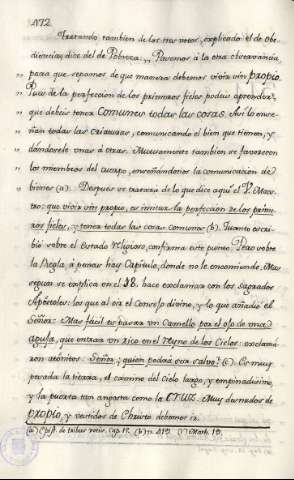 472.
Tratando tambien de los tres votos, explicado el de obe-
diencia, dice del de Pobreza: „ Pasemos à la otra observancia,
„ para que sepamos de que manera debemos vivir sin propio.
„ Pues de la perfeccion de los primeros fieles podeis aprender,
„ que debeis tener comunes todas las cosas. Asi lo ense-
„ ñan todas las criaturas, comunicando el bien que tienen, y
„ dandosele unas á otras. Mutuamente tambien se favorecen
„ los miembros del cuerpo, enseñandonos la comunicacion de
„ bienes (a). Despues se tratará de lo que dice aqui el V. Maes-
tro: que vivir sin propio, es imitar la perfeccion de los prime-
ros fieles, y tener todas las cosas comunes (b). Quanto escri-
bió sobre el estado Religioso, confirma este punto. Pero sobre
la Regla, à penas hay Capitulo, donde no le encomiende. Mas
seguir se explica en el 18. hace exclamar con los Sagrados
Apóstoles: los que al oir el Consejo divino, y lo que añadió el
Señor: Mas facil es pasar un Camello por el ojo de una
aguja, que entrar un rico en el Reyno de los Cielos: exclama-
ron atónitos: Señor, ¿quien podrá ser salvo? (c). Es muy
pesada la tierra, el camino del Cielo largo, y empinadisimo,
y la puerta tan angosta como la Cruz. Muy desnudos de
propio, y vestidos de Christo debemos ir.
(a) Expl. de tribus votis, Cap. 12. (b) n. 419. (c) Math. 19.